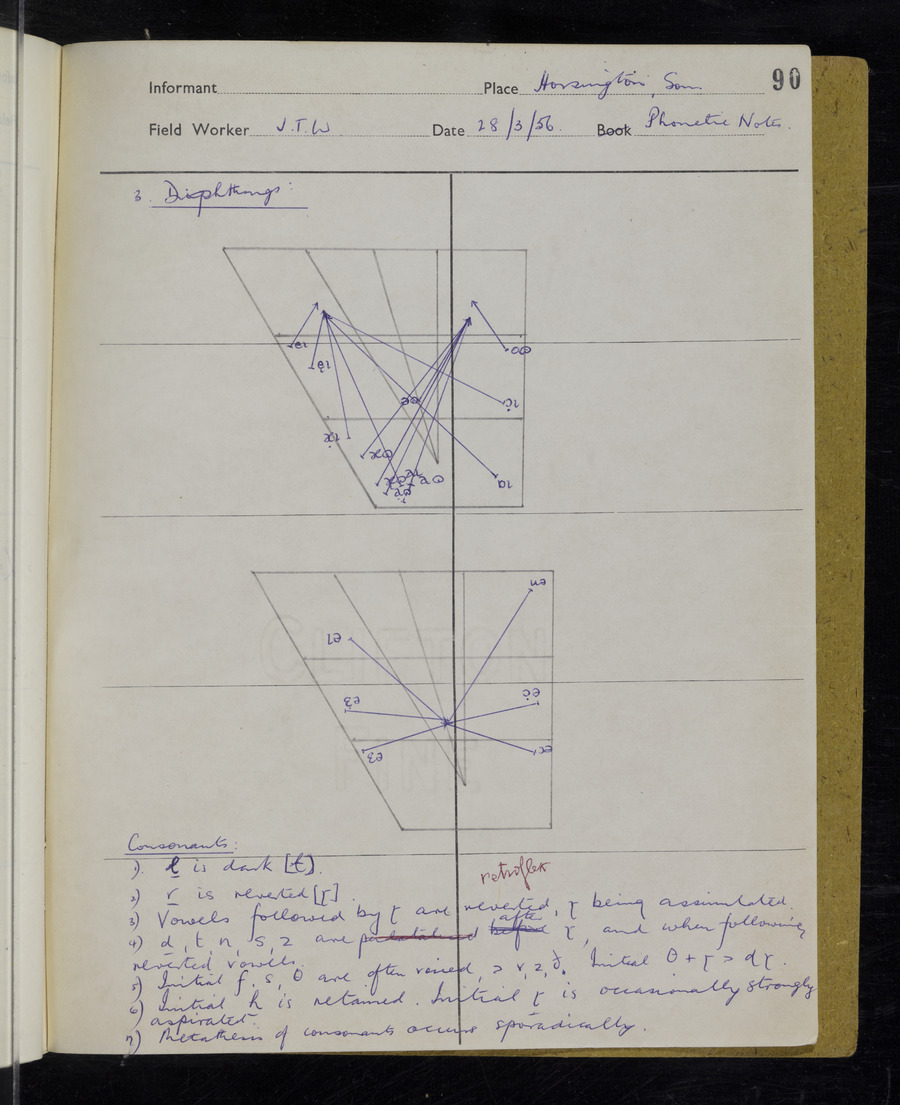 Informant
Place Horsington, Som
90
Field Worker J.T.W
Date 28/3/56
Book Phonetic Notes.
3. Diaphthongs:
Consonants:
1). l is dark [ɫ].
2) r is reverted [ɽ].
retroflex
3) Vowels followed by ɽ are reverted, ɽ being assimilated.
4) d, t, n, s, z are palatalised before after ɽ, and when following
reverted vowels.
5) Initial f, s, θ are often voiced, > v, z, ð. Initial θ + ɽ > dɽ.
6) Initial h is retained. Initial ɽ is occasionally strongly
aspirated.
7) Metathesis of consonants occurs sporadically.